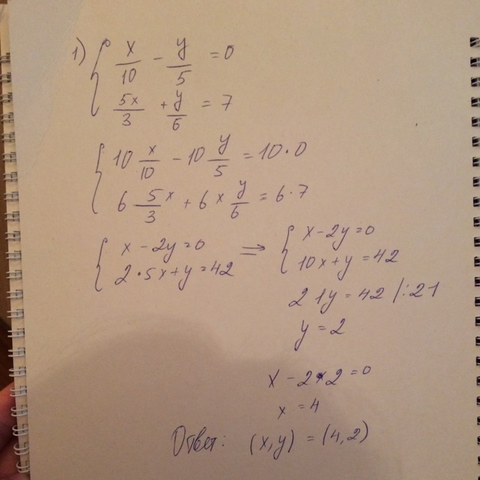 1) { x/10 - y/5 = 0
5x/3 + y/6 = 7
{ 10 x/10 - 10 y/5 = 10•0
6 5/3 x + 6 x y/6 = 6•7
{ x - 2y = 0 => { x - 2y = 0
2•5x + y = 42 10x + y = 42
21y = 42 /:21
y = 2
x - 2•2 = 0
x = 4
Ответ: (x,y) = (4,2)